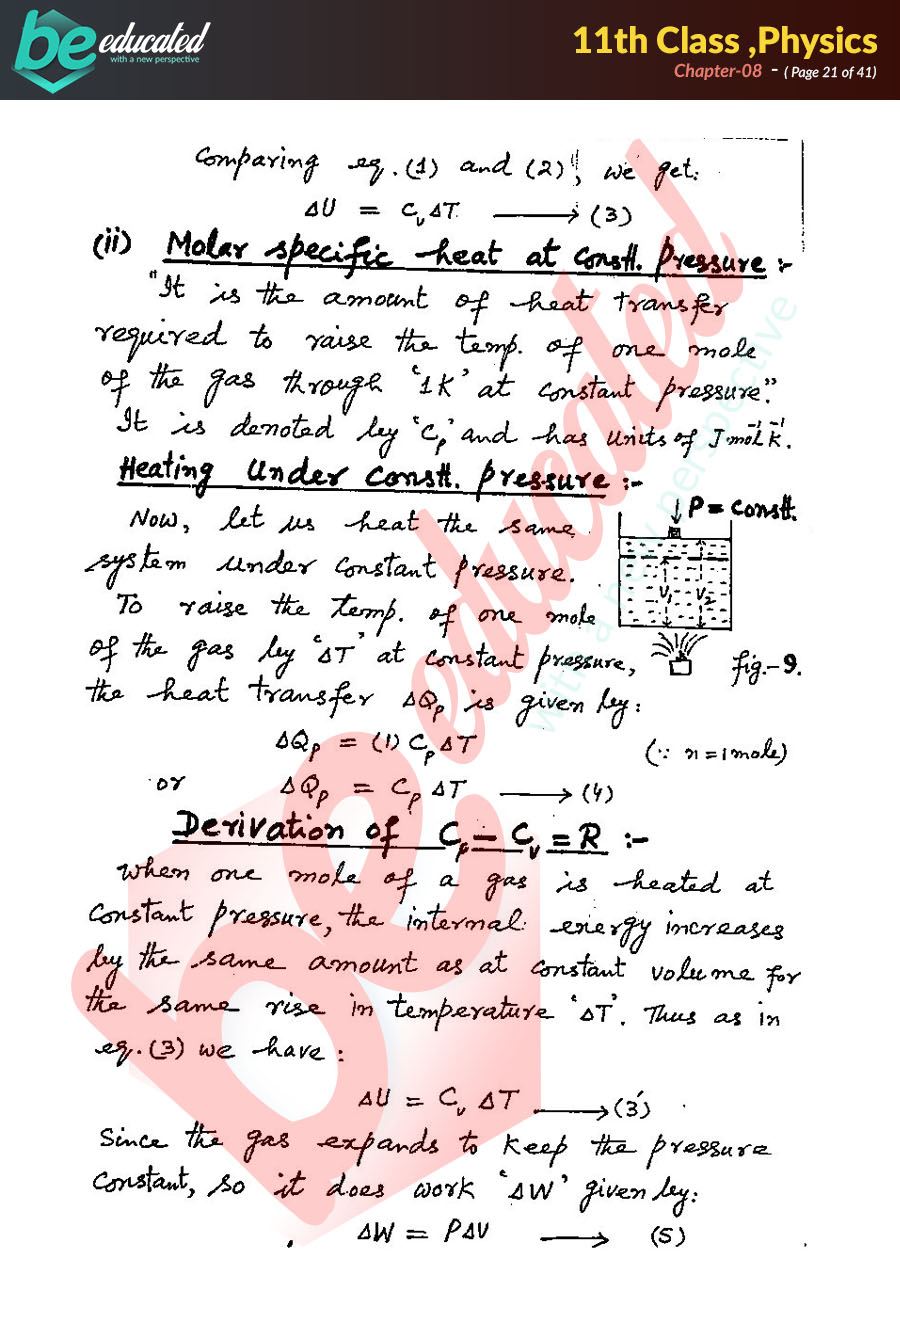 be educated
with a new perspective
11th Class ,Physics
Chapter-08 - ( Page 21 of 41)
Comparing eq.(1) and (2), we get:
ΔU = CᵥΔT ⟶ (3)
(ii) Molar specific heat at constt. Pressure :-
"It is the amount of heat transfer
required to raise the temp. of one mole
of the gas through '1K' at constant pressure."
It is denoted by 'Cₚ' and has units of J mol⁻¹ K⁻¹.
Heating Under Constt. Pressure :-
Now, let us heat the same
system under constant pressure.
To raise the temp. of one mole
of the gas by 'ΔT' at constant pressure,
the heat transfer ΔQₚ is given by:
↓ P = Constt.
V₁ V₂
fig.-9.
ΔQₚ = (1) CₚΔT (∵ n = 1 mole)
or ΔQₚ = Cₚ ΔT ⟶ (4)
Derivation of Cₚ - Cᵥ = R :-
When one mole of a gas is heated at
Constant pressure, the internal energy increases
by the same amount as at constant volume for
the same rise in temperature 'ΔT'. Thus as in
eq.(3) we have :
ΔU = Cᵥ ΔT ⟶ (3')
Since the gas expands to keep the pressure
Constant, so it does work 'ΔW' given by:
ΔW = PΔV ⟶ (5)
be educated
with a new perspective